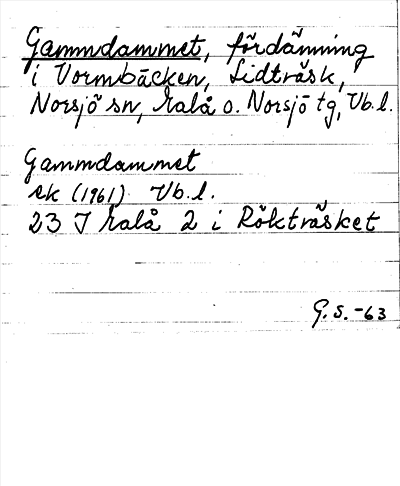 Gammdammet, fördämning
i Vormbäcken, Lidträsk,
Norsjö sn, Malå o. Norsjö tg, Vb.l.
Gammdammet
ek (1961) Vb.l.
23 J Malå 2 i Rökträsket
G.S.-63